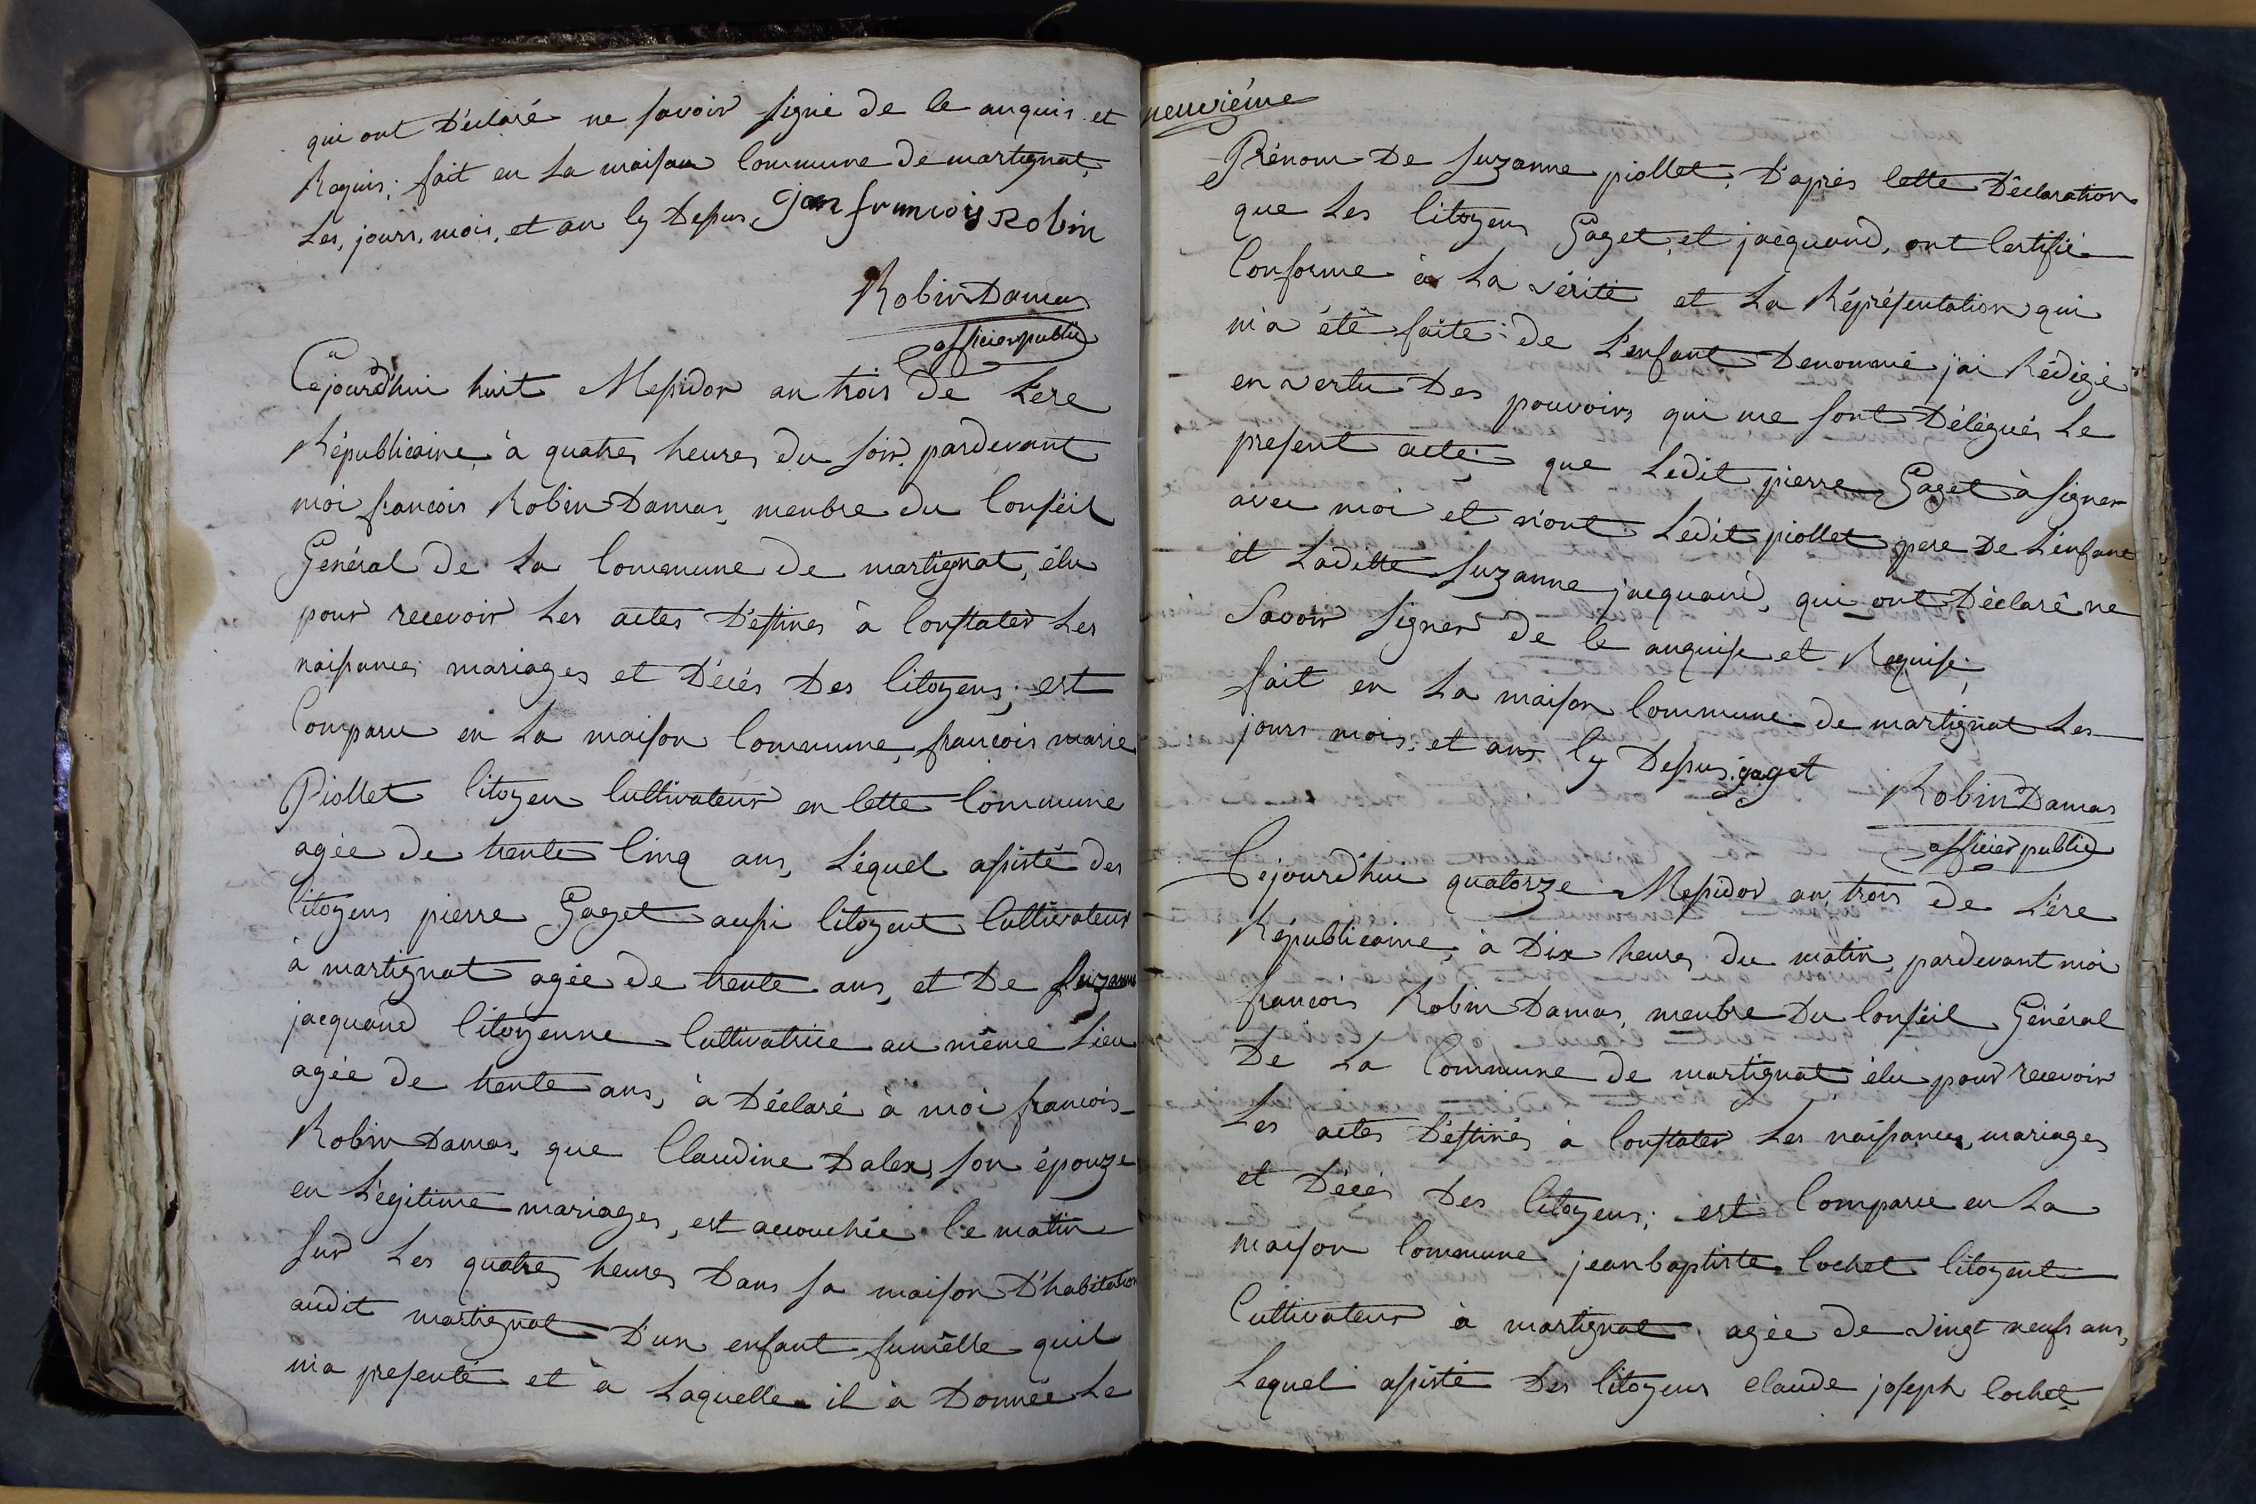 qui ont Déclaré ne savoir signé de ce anquis et
Raquis; fait en La maison Commune de martignat,
Les, jours, mois, et an Cy Depus jan francois Robin
Robin Damas
officier public
Cejourd'hui huit Messidor an trois de L'ere
Républicaine, à quatres heures du soir, pardevant
moi francois Robin Damas, menbre du Conséil
Genéral de La Commune de martignat, élu
pour recevoir Les actes D'estines à Constater Les
naissances mariages et Décés Des Citoyens; est
Comparu en La maison Commune, francois marie
Piollet Citoyen Cultivateur en Cette Commune
agée de trente Cinq ans, Léquel assisté des
Citoyens pierre Gaget aussi Citoyent Cultivateur
à martignat agée de trente ans, et De Suzanne
jacquand Citoyenne Cultivatrice au même Lieu
agée de trente ans, à Déclaré à moi francois
Robin Damas, que Claudine Dalex, son épouze
en Légitime mariages, est accouchée Ce matin
sur Les quatres heures Dans sa maison D'habitation
audit martignat D'un enfant fumêlle quil
m'a presenté et à Laquelle il a Donnée Le
neuviéme
Prénom De Suzanne piollet, D'aprés Cette Déclaration
que Les Citoyens Gaget, et jacquand, ont Certifié
Conforme à La vérité et La Réprésentation qui
m'a été faite de L'enfant Denommé j'ai Rédigé
en vertu Des pouvoirs qui me sont Délégués Le
present acte; que Ledit pierre Gaget à signer
avec moi et n'ont Ledit piollet pere De L'enfant
et Laditte Suzanne jacquand, qui ont Déclaré ne
Savoir signer de Ce anquise et Requise;
fait en La maison Commune de martignat Les
jours mois, et ans Cy Depus; gaget
Robin Damas
officier public
Cejourd'hui quatorze Messidor an trois de L'ére
Républicaine, à Dix heures du matin, pardevant moi
francois Robin Damas, menbre Du Conséil Genéral
De La Commune de martignat élu pour recevoir
Les actes Destinés à Constater Les naissances, mariages
et Décés Des Citoyens; est Comparu en La
maison Commune jean baptiste Cochet Citoyent
Cultivateur à martignat, agée de vingt neufs ans,
Lequel assisté Des Citoyens claude joseph Cochet